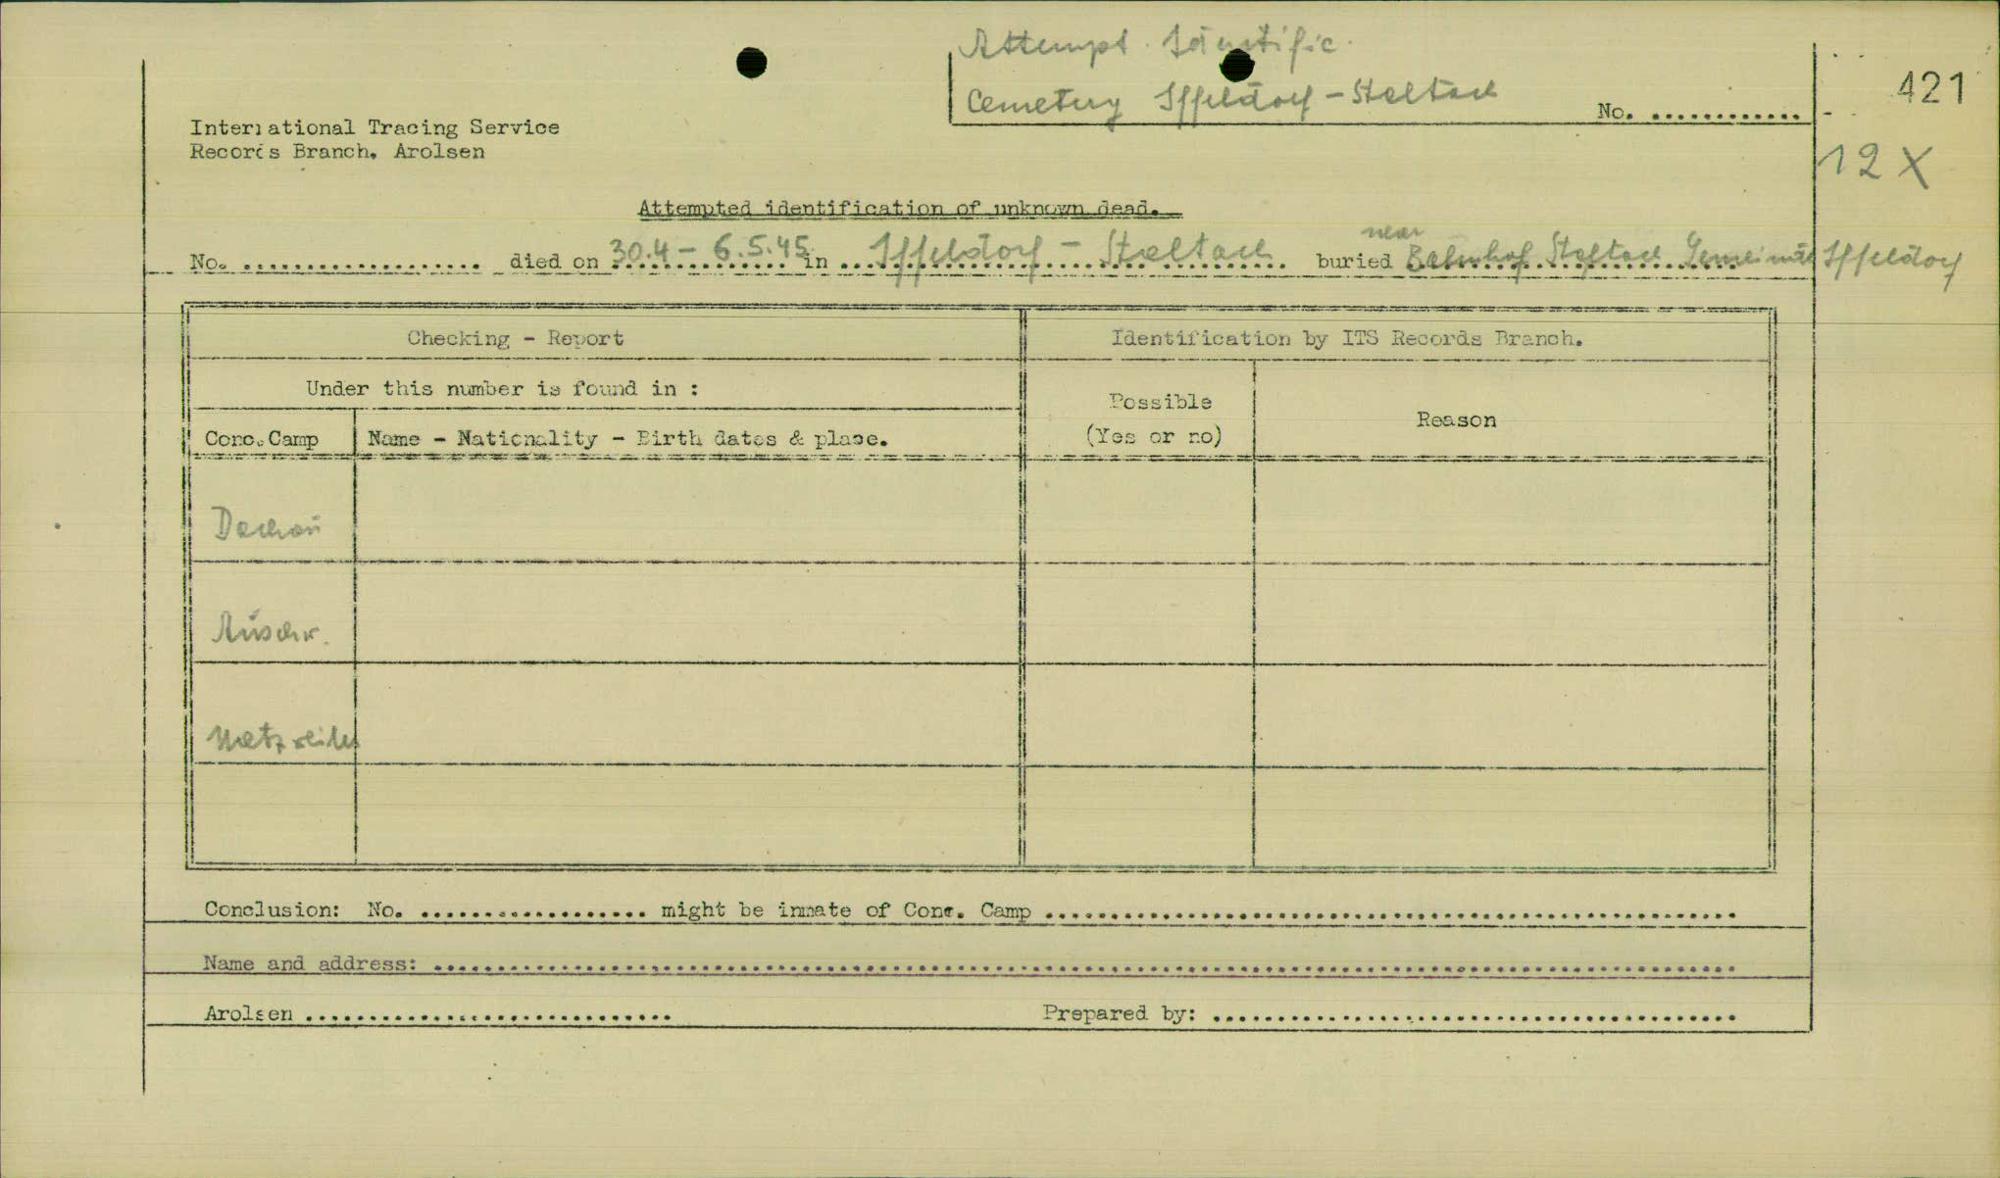 Attempt. Identific.
Cemetery Iffeldorf – Staltach
No. ............
421
International Tracing Service
Records Branch, Arolsen
12 X
Attempted identification of unknown dead.
No. .................. died on 30.4 – 6.5.45 in Iffeldorf – Staltach buried near Bahnhof Staltach Gemeinde Iffeldorf
Checking - Report
Identification by ITS Records Branch.
Under this number is found in :
Possible
(Yes or no)
Reason
Conc. Camp
Name - Nationality - Birth dates & place.
Dachau
Auschw.
Natzweiler
Conclusion: No. .................. might be inmate of Conc. Camp ..............................
Name and address: ..............................
Arolsen ..............................
Prepared by: ..............................